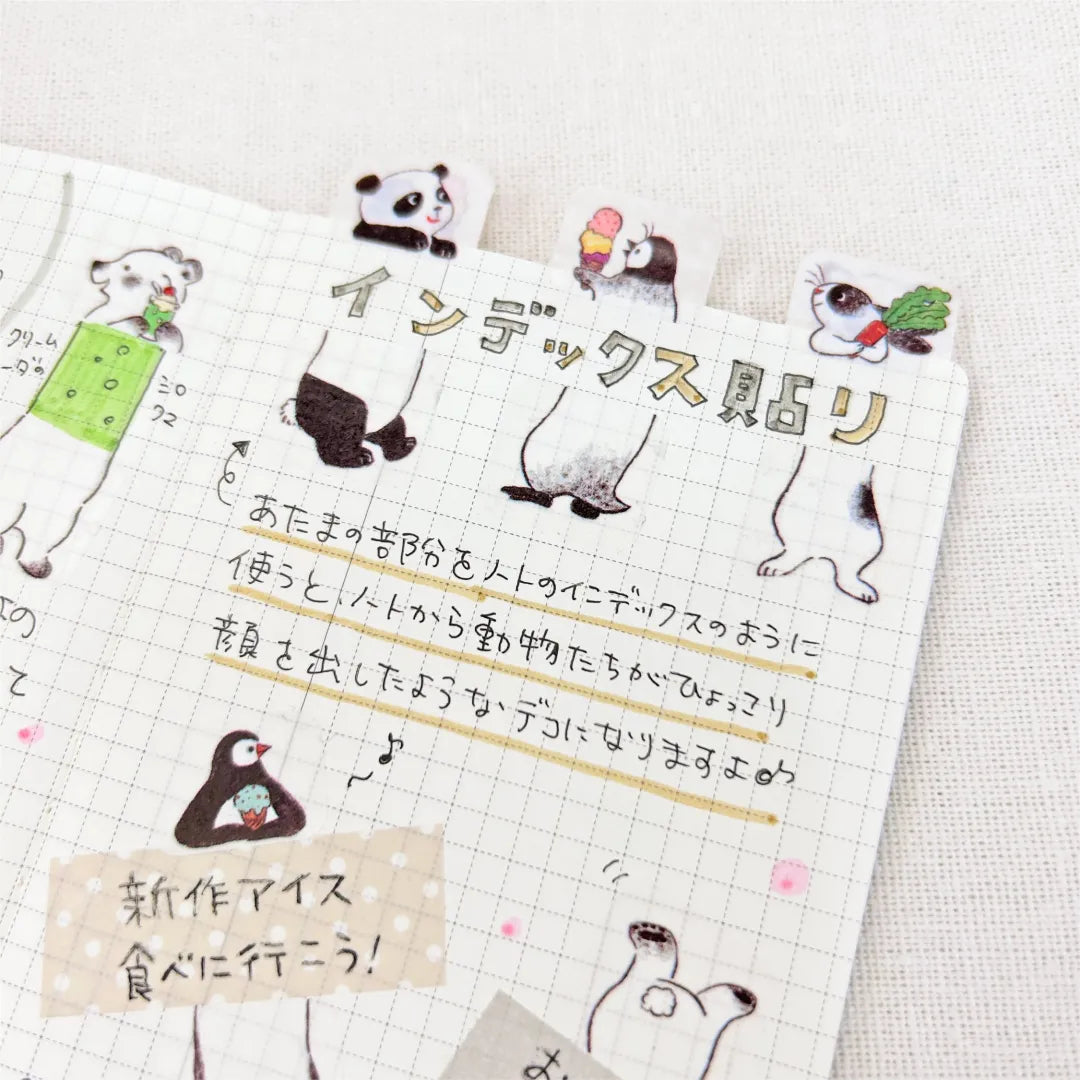 インデックス貼り
クリーム
ミロ
クマ
あたまの部分をノートのインデックスのように
使うと、ノートから動物たちがひょっこり
顔を出したようなデコになりますよ♪
新作アイス
食べに行こう!